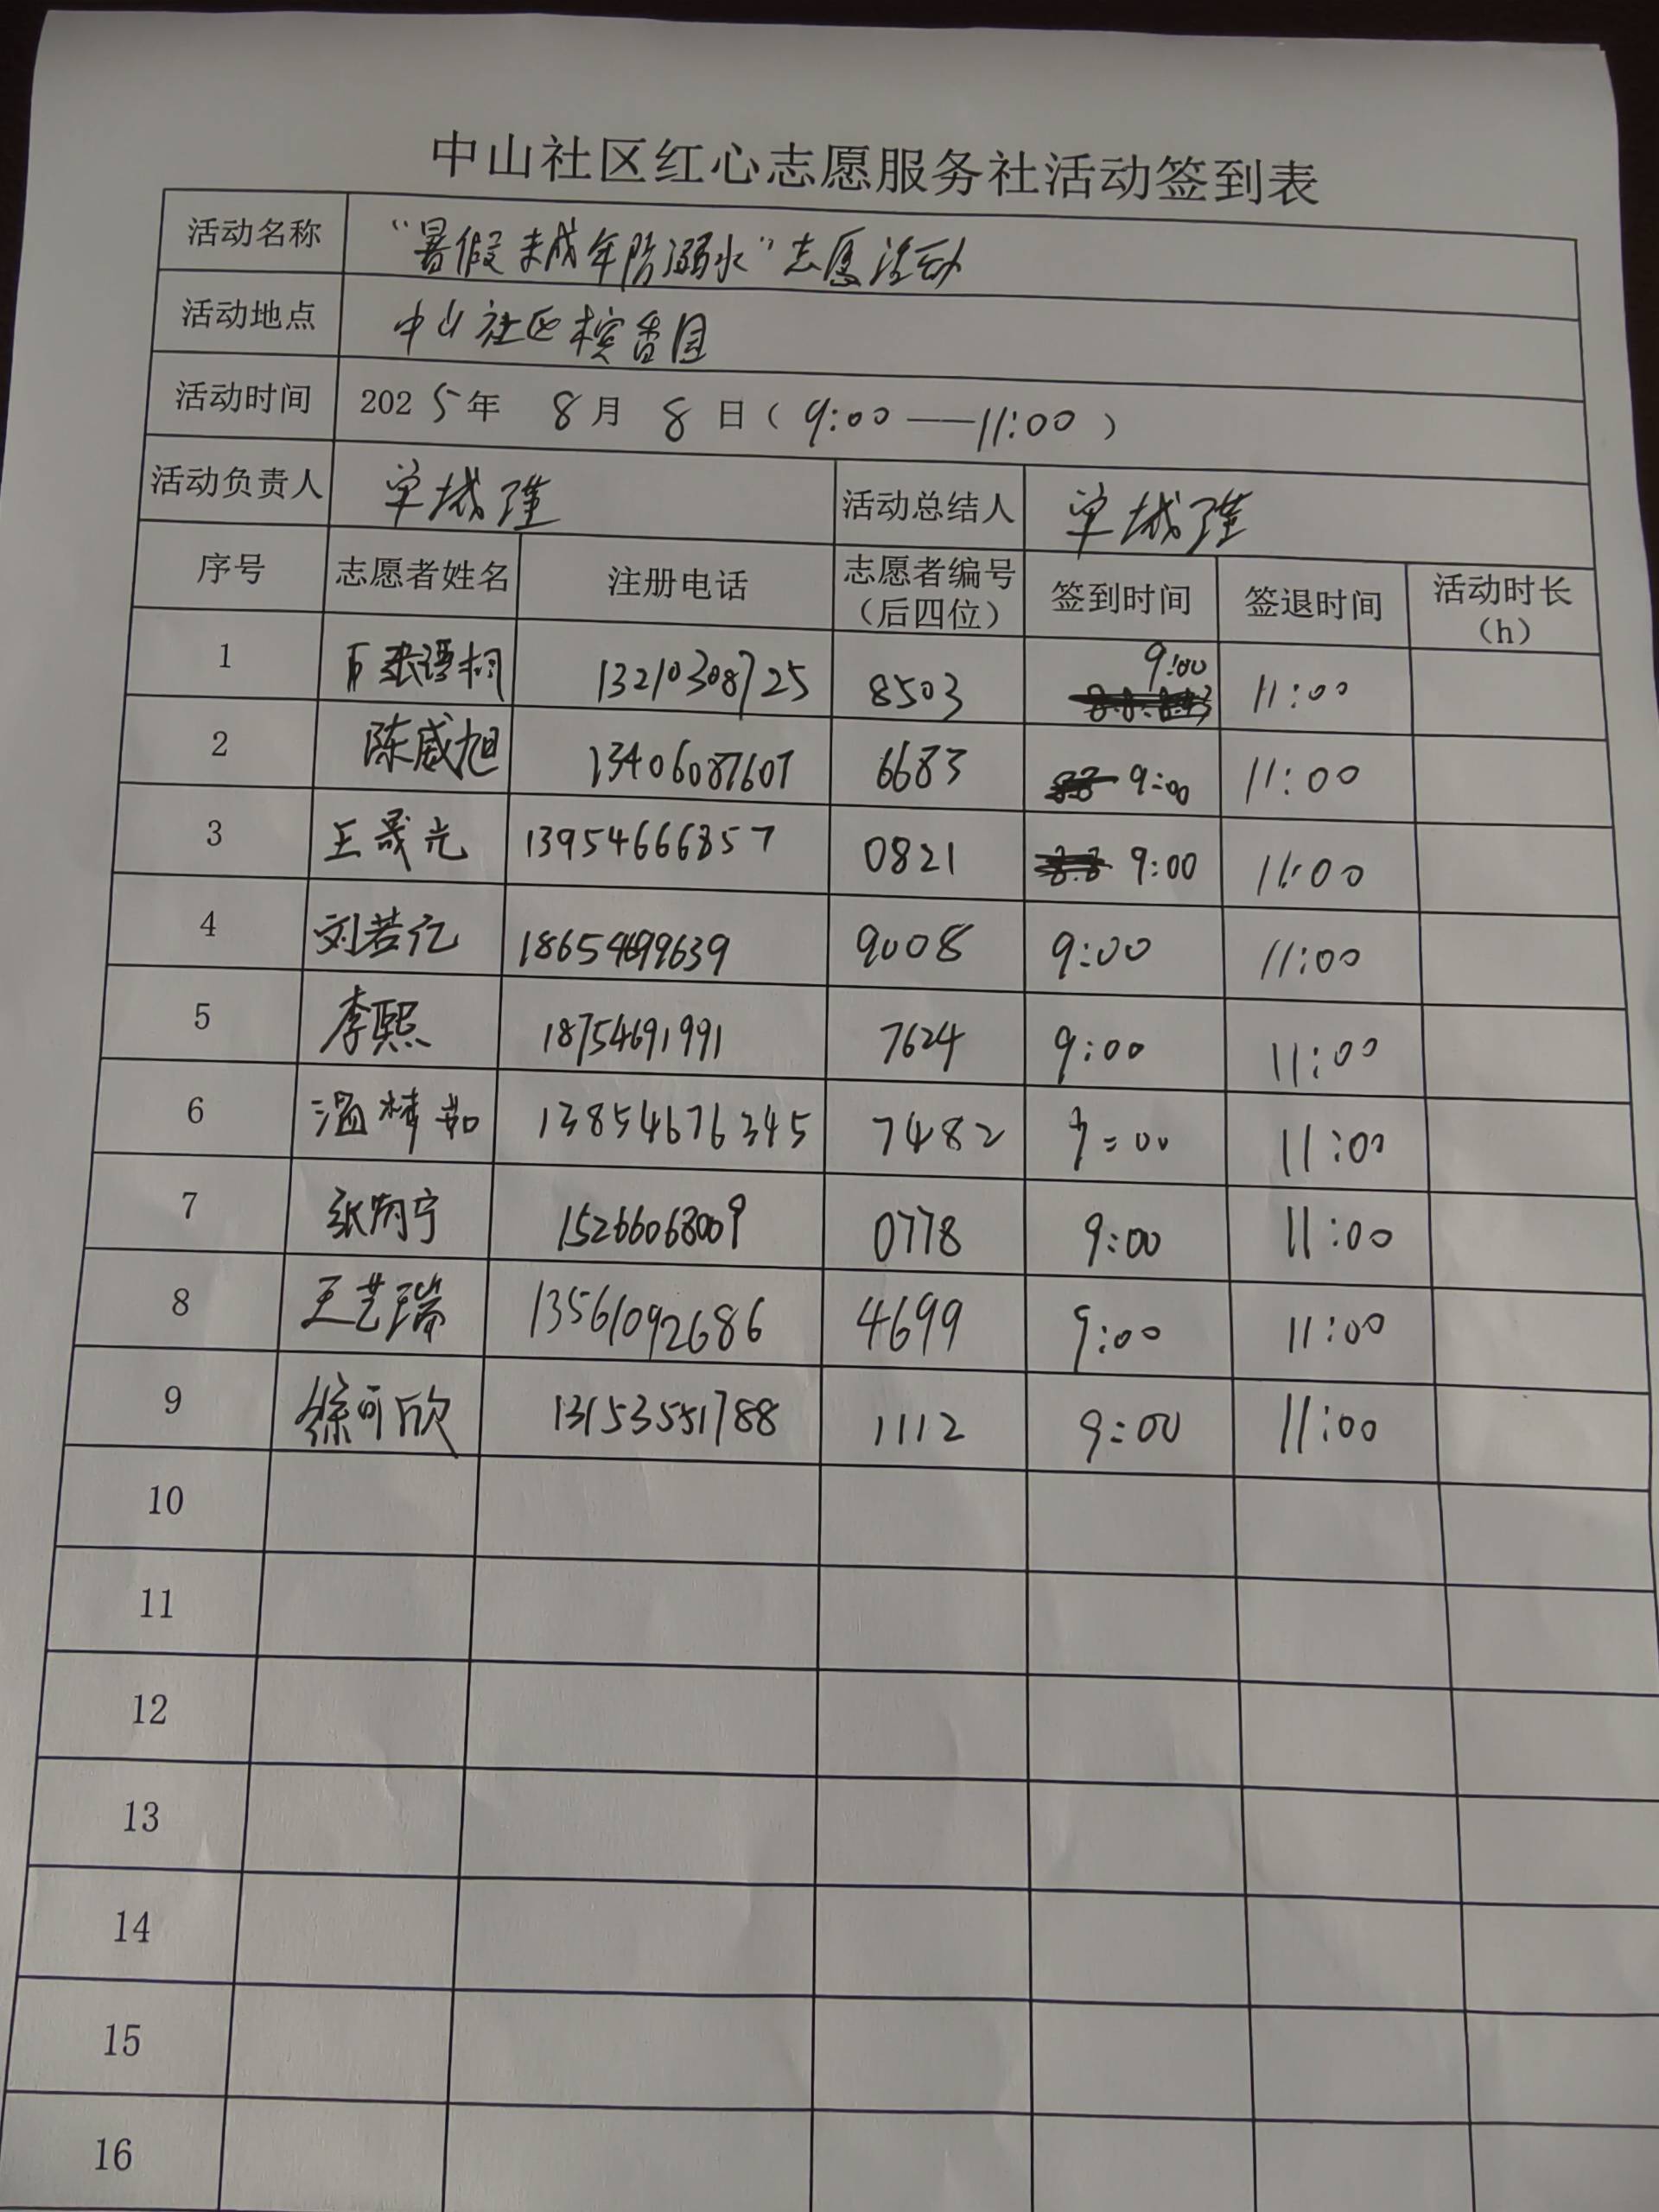 中山社区红心志愿服务社活动签到表
活动名称 “暑假未成年防溺水”志愿活动
活动地点 中山社区槟香园
活动时间 2025年 8月 8日（9:00——11:00）
活动负责人 单城瑾 活动总结人 单城瑾
序号 志愿者姓名 注册电话 志愿者编号（后四位） 签到时间 签退时间 活动时长（h）
1 张语桐 13210308725 8503 9:00 11:00
2 陈威旭 13406087607 6683 9:00 11:00
3 王晟光 13954666857 0821 9:00 11:00
4 刘若亿 18654699639 9008 9:00 11:00
5 李熙 18754691991 7624 9:00 11:00
6 温梦茹 13854676345 7482 9:00 11:00
7 张芮宁 15266068009 0778 9:00 11:00
8 王艺瑞 13561092686 4699 9:00 11:00
9 徐可欣 13153551788 1112 9:00 11:00
10
11
12
13
14
15
16